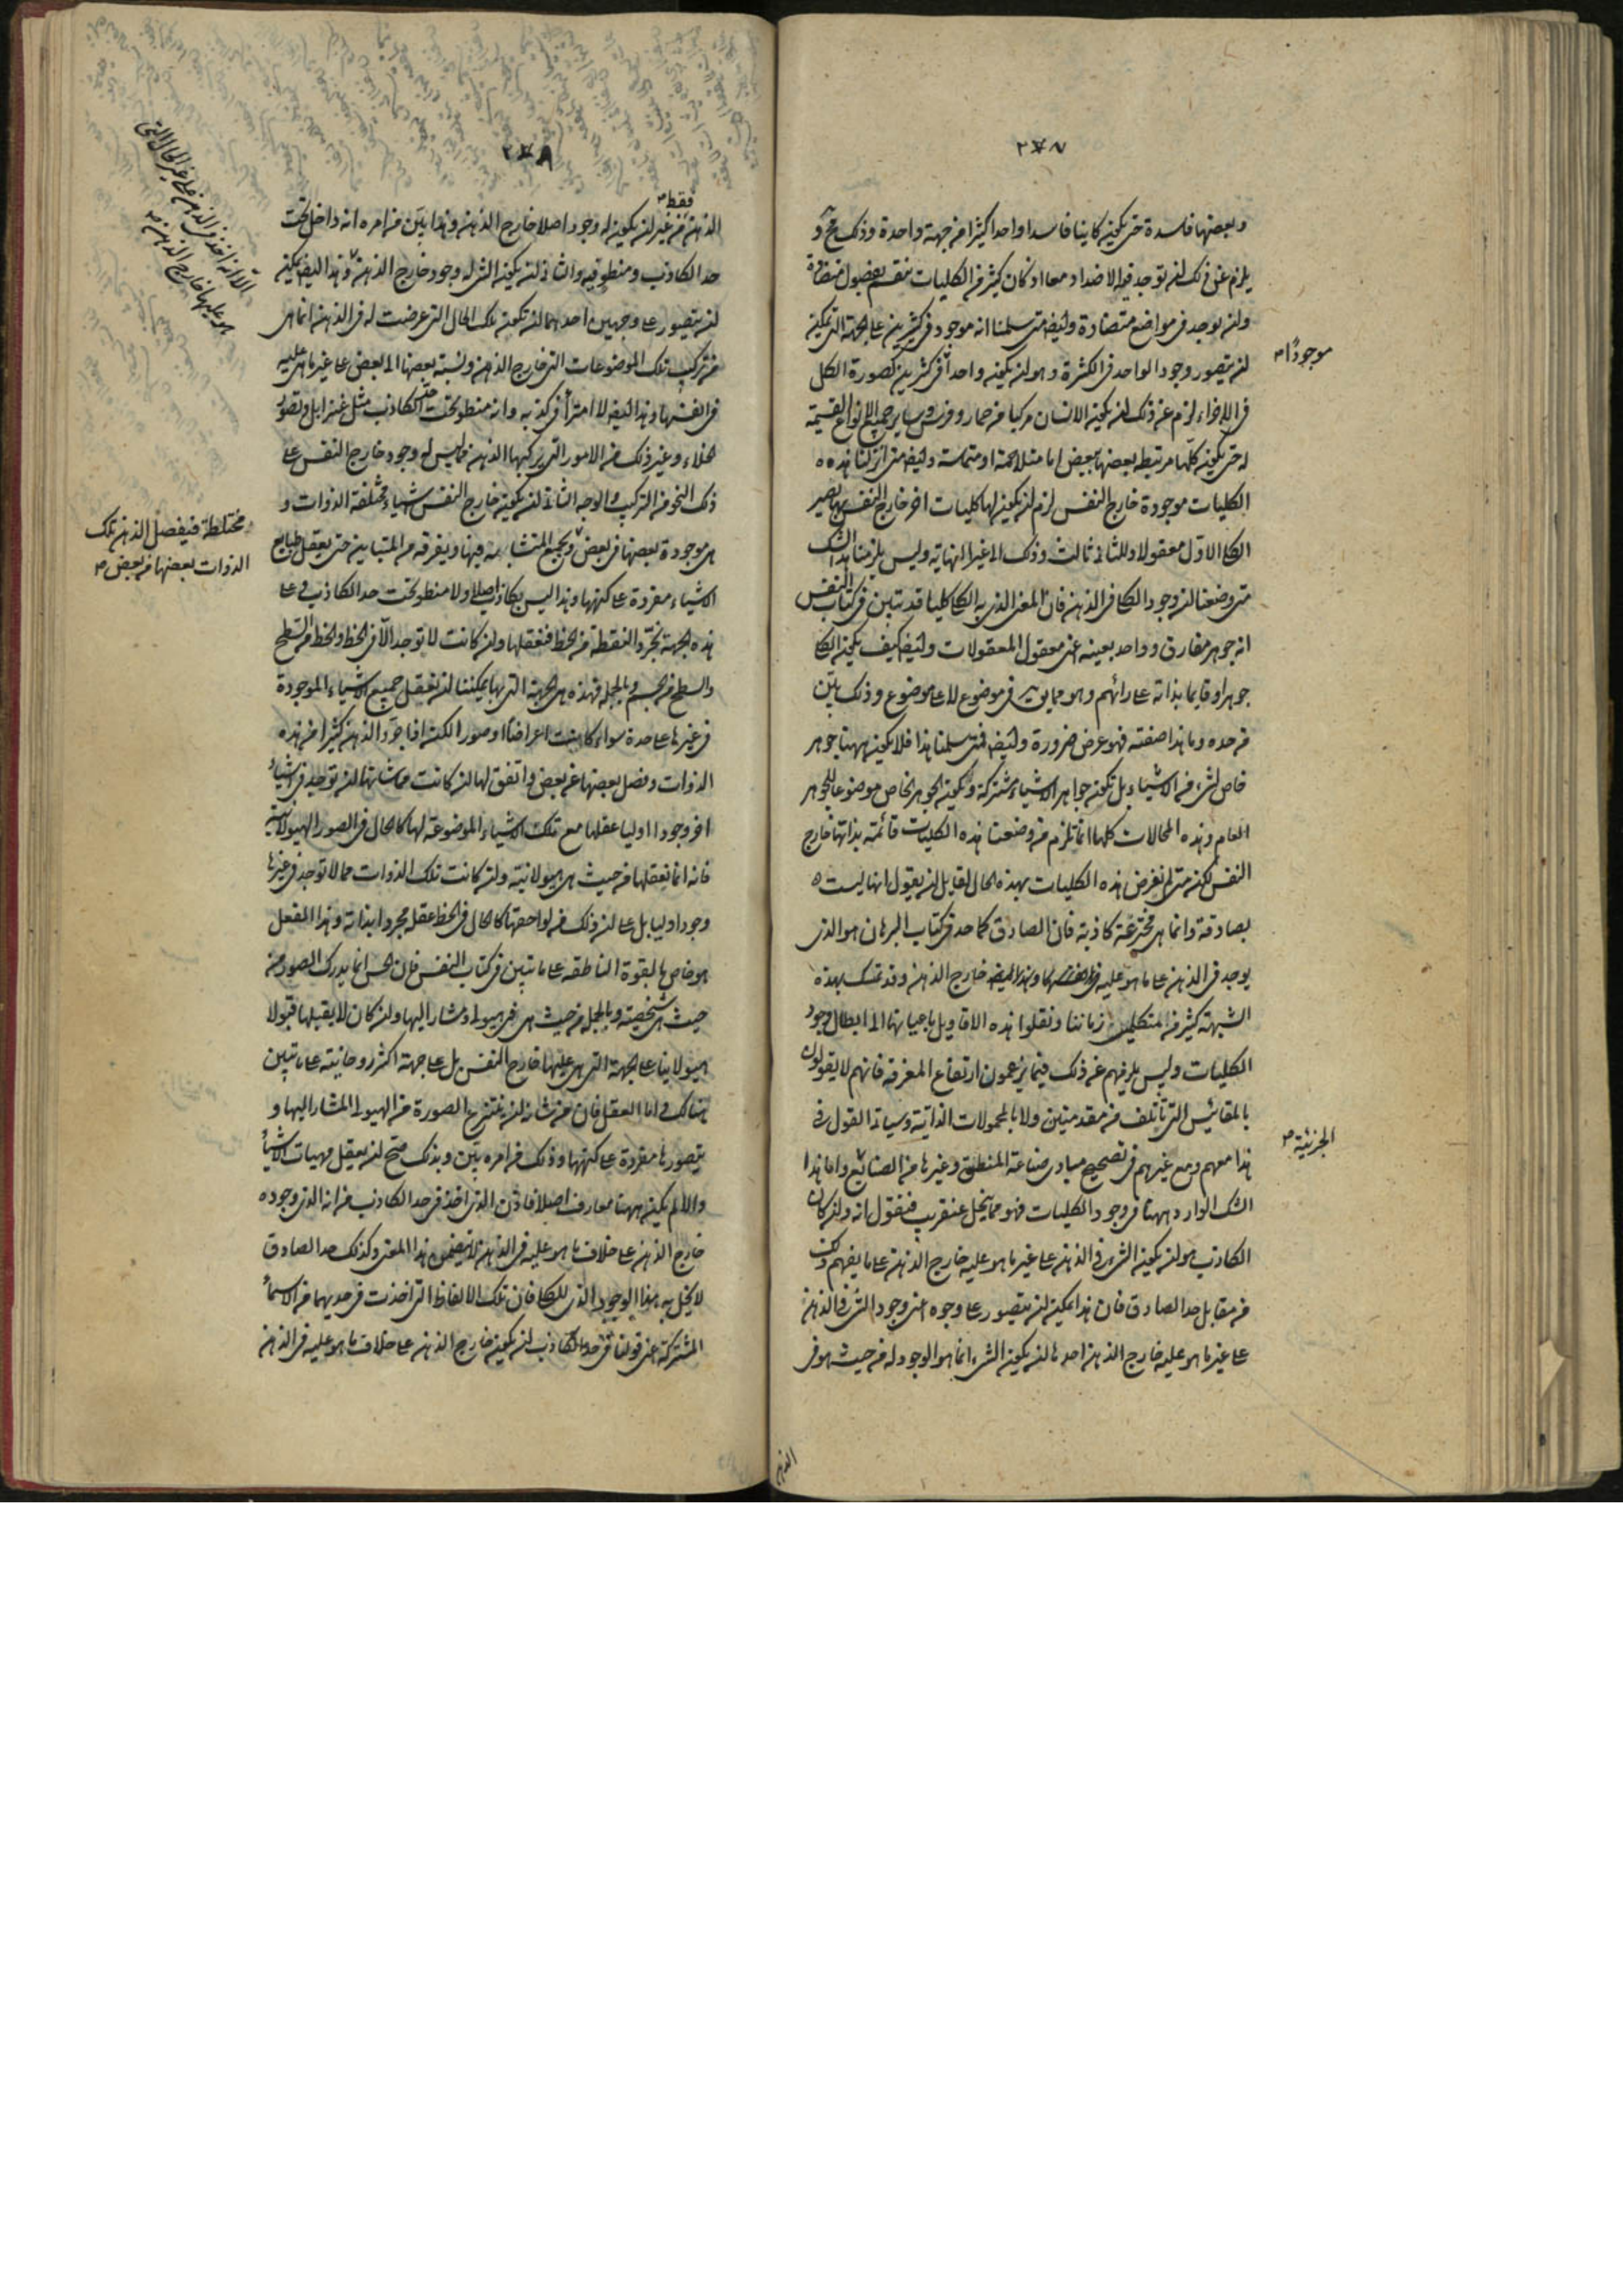 ٢٧٧
وبعضها فاسدة حتى يكون كاينا فاسدا واحدا كثيرا من جهة واحدة وذلك مح و
يلزم عن ذلك ان توجد فيه الاضداد معا اذ كان كثير من الكليات تنقسم بفصول متضادة
وان يوجد فى مواضع متضادة وايضا متى سلمنا انه موجود فى كثيرين على الجهة التى يمكن
ان يتصور وجود الواحد فى الكثرة وهو ان يكون واحدا فى كثيرين كصورة الكل
موجودًا
فى الاجزاء لزم عن ذلك ان يكون الانسان مركبا من حمار وفرس وساير جميع الانواع القسيمة
له حتى يكون كلها مرتبطه بعضها ببعض اما متلاحمة او متماسة وايضا متى انزلنا هذه
الكليات موجودة خارج النفس لزم ان يكون لها كليات اخر خارج النفس بها يصير
الكلى الاول معقولا وللثانى ثالث وذلك الى غير النهاية وليس يلزمنا هذا الشك
متى وضعنا ان وجود الكلى فى الذهن فان المعنى الذى به الكلى كليا قد تبين فى كتاب النفس
انه جوهر مفارق وواحد بعينه اعنى معقول المعقولات وايضا كيف يكون الكلى
جوهرا وقايما بذاته على رائهم وهو مما يق فى موضوع لا على موضوع وذلك بين
من حده وما هذا صفته فهو عرض ضرورة وايضا فمتى سلمنا هذا فلا يكون ههنا جوهر
خاص لشىء من الاشياء بل تكون جواهر الاشياء مشتركة وتكون الجوهر الخاص موضوعا للجوهر
العام وهذه المحالات كلها انما تلزم من وضعنا هذه الكليات قائمة بذاتها خارج
النفس لكن متى لم نفرض هذه الكليات بهذه الحال لقايل ان يقول انها ليست
بصادقة وانما هى مخترعة كاذبة فان الصادق كما حد فى كتاب البرهان هو الذى
يوجد فى الذهن على ما هو عليه خارج الذهن وقد تمسك بهذه
الشبهة كثير من المتكلمين زماننا ونقلوا هذه الاقاويل باعيانها الى ابطال وجود
الكليات وليس يلزمهم عن ذلك فيما يزعمون ارتفاع المعرفة فانهم لا يقولون
بالمقائيس التى تأتلف من مقدمتين ولا بالمحمولات الذاتية وسياتى القول فى
هذا معهم ومع غيرهم فى تصحيح مبادى صناعة المنطق وغيرها من الصنائع واما هذا
الجزئية
الشك الوارد ههنا فى وجود الكليات فهو مما ينحل عنقريب فنقول انه وان كان
الكاذب هو ان يكون الشىء فى الذهن على غير ما هو عليه خارج الذهن على ما يفهم ذلك
من مقابل حد الصادق فان هذا يمكن ان يتصور على وجوه اعنى وجود الشىء فى الذهن
على غير ما هو عليه خارج الذهن احدها ان يكون الشىء انما هو الوجود له من حيث هو فى
الذهن
٢٧٨
فقط
الذهن من غير ان يكون له وجود اصلا خارج الذهن وهذا بين من امره انه داخل تحت
حد الكاذب ومنطو فيه والثانى ان يكون الشىء له وجود خارج الذهن وهذا ايضا يمكن
ان يتصور على وجهين احدهما ان تكون تلك الحال التى عرضت له فى الذهن انما هى
من تركيب تلك الموضوعات التى خارج الذهن ونسبة بعضها الى بعض على غير ما هى عليه
فى انفسها وهذا ايضا لا امتراء فى كذبه وانه منطو تحت حد الكاذب مثل عنز ايل وتصور
الخلاء وغير ذلك من الامور التى يركبها الذهن مما ليس له وجود خارج النفس على
ذلك النحو من التركيب والوجه الثانى ان يكون خارج النفس اشياء مختلفة الذوات و
هى موجودة بعضها فى بعض ويجمع المتشابه فيها ويفرقه من المتباين حتى يعقل طبايع
مختلطة فيفصل الذهن تلك
الذوات بعضها من بعض
الاشياء مفردة على كنهها وهذا ليس بكاذب اصلا ولا منطو تحت حد الكاذب وعلى
هذه الجهة تجرد النقطة من الخط فنعقلها وان كانت لا توجد الا فى الخط والخط من السطح
والسطح من الجسم وبالجملة فهذه هى الجهة التى بها يمكننا ان نعقل جميع الاشياء الموجودة
فى غيرها على حدة سواء كانت اعراضا او صورا لكن اذا جرد الذهن كثيرا من هذه
الذوات وفصل بعضها عن بعض واتفق لها ان كانت مما شانها ان توجد فى اشياء
اخر وجودا اوليا عقلها مع تلك الاشياء الموضوعة لها كالحال فى الصور الهيولانية
فانه انما نعقلها من حيث هى هيولانية وان كانت تلك الذوات مما لا توجد فى غيرها
وجودا اوليا بل على ان ذلك من لواحقها كالحال فى الخط عقله مجردا بذاته وهذا الفعل
هو خاص بالقوة الناطقه على ما تبين فى كتاب النفس فان الحس انما يدرك الصور من
حيث هى شخصية وبالجملة من حيث هى فى هيولى ومشار اليها وان كان لا يقبلها قبولا
هيولانيا على الجهة التى هى عليها خارج النفس بل على جهة اكثر روحانية على ما تبين
هنالك واما العقل فان من شانه ان ينتزع الصورة من الهيولى المشار اليها و
يتصورها مفردة على كنهها وذلك من امره بين وبذلك صح ان يعقل مهيات الاشياء
والا لم يكن ههنا معارف اصلا فاذن الذى اخذ فى حد الكاذب من انه الذى وجوده
خارج الذهن على خلاف ما هو عليه فى الذهن لا يضمن هذا المعنى وكذلك حد الصادق
لا يخل به هذا الوجود الذى للكلى فان تلك الالفاظ التى اخذت فى حديهما من الاسماء
المشتركة اعنى قولنا فى حد الكاذب ان يكون خارج الذهن على خلاف ما هو عليه فى الذهن